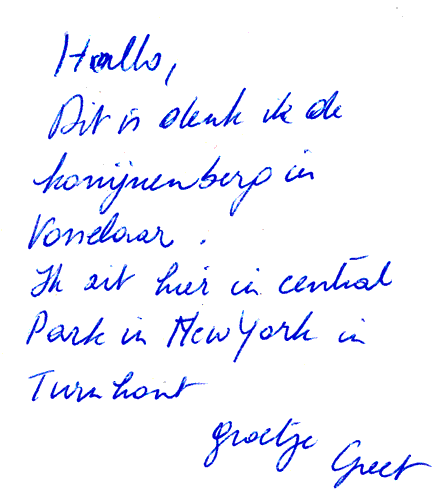 Hallo,
Dit is denk ik de
konijnenberg in
Vosselaar.
Ik zit hier in central
Park in New York in
Turnhout
groetje
Greet